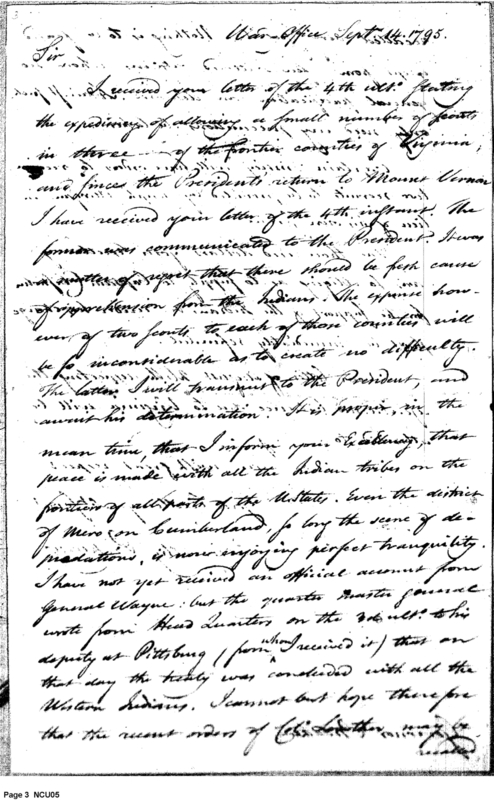 War-Office Sept. 14. 1795.
Sir
I received your letter of the 4th ulto. stating
the expediency of allowing a small number of scouts
in three of the frontier counties of Virginia;
and since the Presidents return to Mount Vernon
I have received your letter of the 4th instant. The
former was communicated to the President. It was
a matter of regret that there should be fresh cause
of apprehension from the Indians. The expense how-
ever, of two scouts to each of those counties will
be so inconsiderable as to create no difficulty.
The latter, I will transmit to the President, and
await his determination. It is proper, in the
mean time, that I inform your Excellency, that
peace is made with all the Indian tribes on the
frontiers of all parts of the UStates. Even the district
of Mero on Cumberland, so long the scene of de-
predations, is now enjoying perfect tranquility.
I have not yet received an official account from
General Wayne: but the quarter master general
wrote from Head Quarters on the 3d. ulto. to his
deputy at Pittsburg, (from whom I received it) that on
that day the treaty was concluded with all the
Western Indians. I cannot but hope therefore
that the recent orders of Colo. Lowther may be
Page 3 NCU05